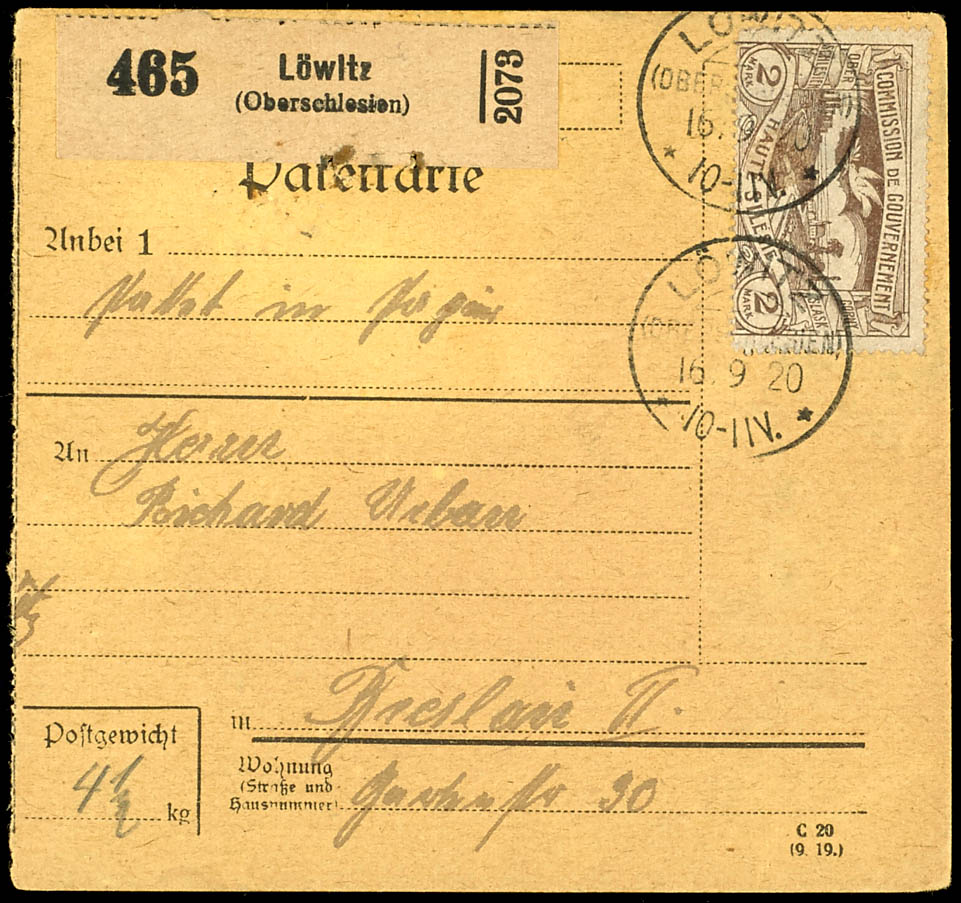 465 Löwitz
(Oberschlesien)
2073
Paketkarte
Anbei 1
Paket in Papier
An Herrn
Richard Urban
in Breslau II.
Wohnung
(Straße und
Hausnummer)
Gartenstr 30
Postgewicht
4 1/2 kg
C 20
(9. 19.)
COMMISSION DE GOUVERNEMENT
HAUTE SILESIE
OBER SCHLESIEN
GORNY ŚLĄSK
2 MARK
2 MARK
LÖWITZ
(OBERSCHLESIEN)
16. 9 20
10-11V.
LÖWITZ
(OBERSCHLESIEN)
16. 9 20
10-11V.